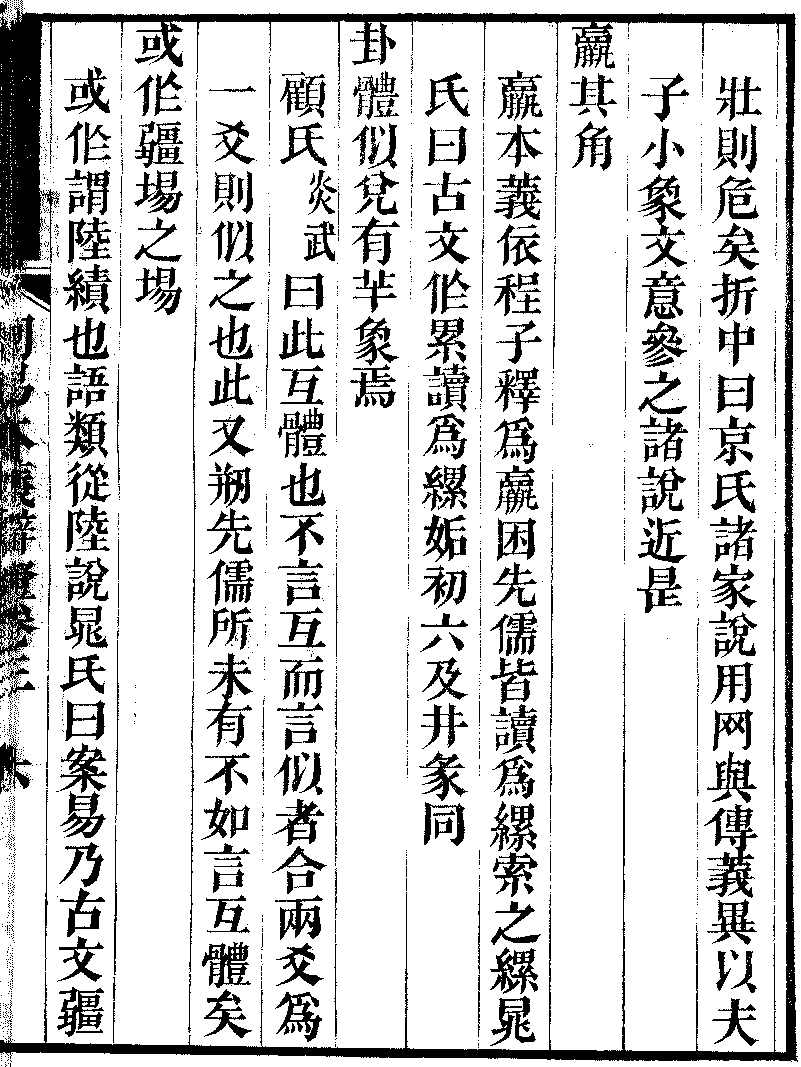 壯則危矣折中曰京氏諸家說用网與傳義異以夫
子小象文意參之諸說近是
羸其角
羸本義依程子釋爲羸困先儒皆讀爲縲索之縲晁
氏曰古文作累讀爲縲姤初六及井彖同
卦體似兌有羊象焉
顧氏炎武曰此互體也不言互而言似者合兩爻爲
一爻則似之也此又剏先儒所未有不如言互體矣
或作疆埸之埸
或作謂陸績也語類從陸說晁氏曰案易乃古文疆
周易本義辨證卷三 六